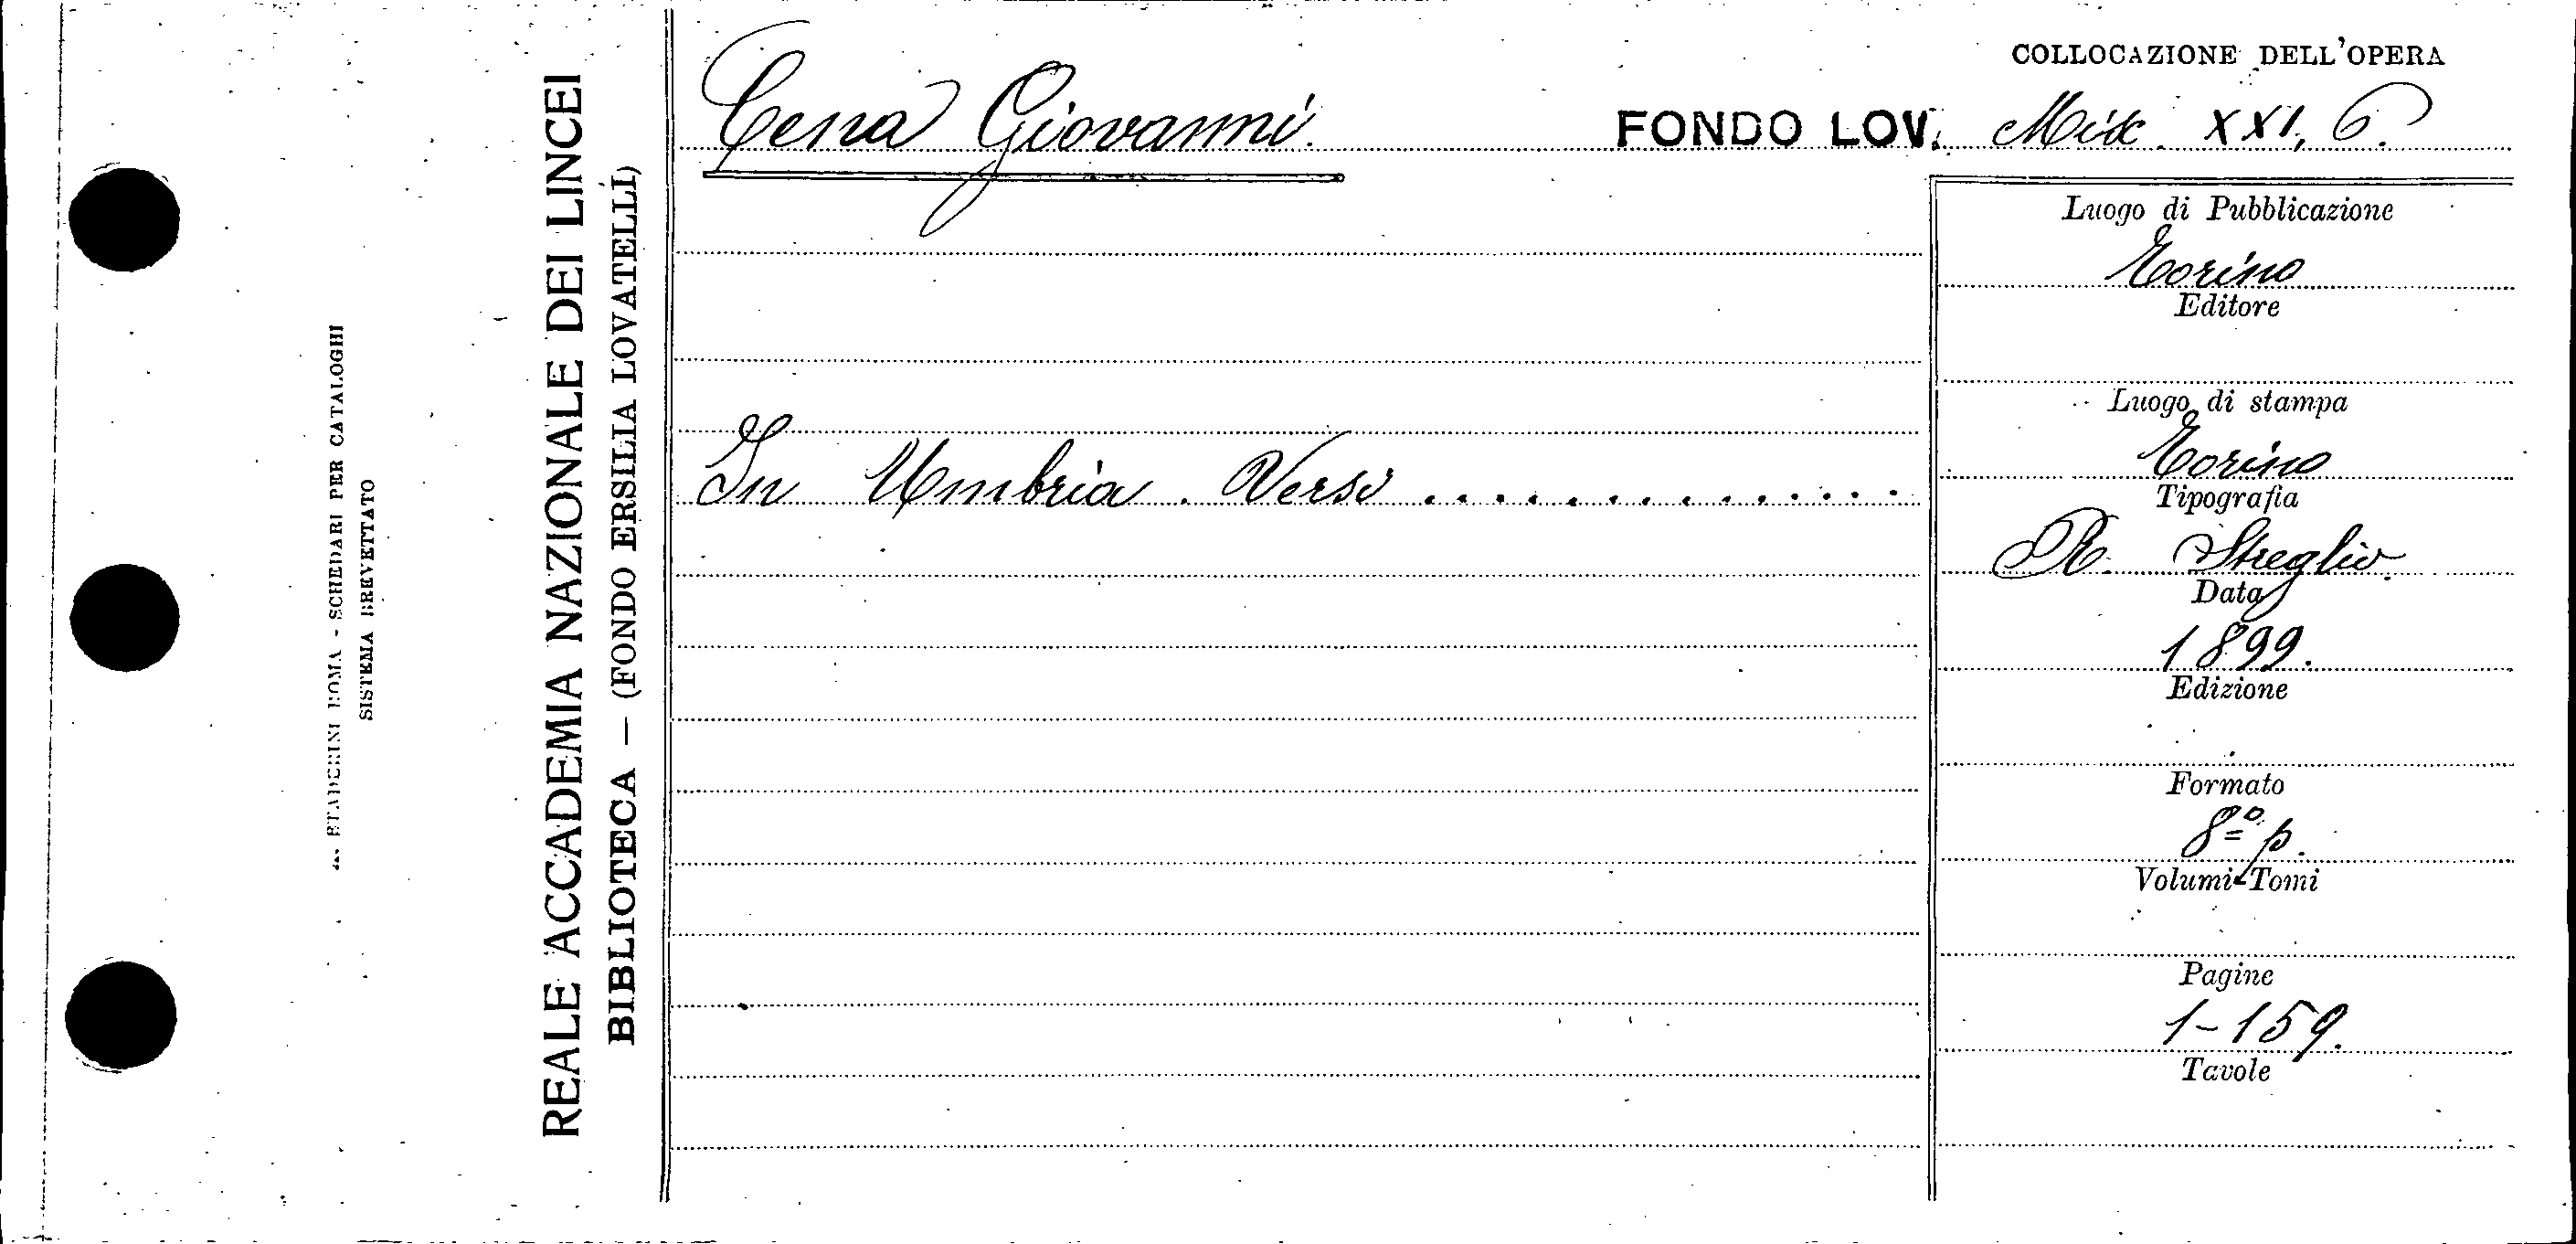 COLLOCAZIONE DELL'OPERA
Cena Giovanni.
FONDO LOV. Misc. XXI, 6.
In Umbria. Versi . . . . . . . . . . . . . .
Luogo di Pubblicazione
Torino
Editore
Luogo di stampa
Torino
Tipografia
R. Streglio.
Data
1899.
Edizione
Formato
8º p.
Volumi-Tomi
Pagine
1-159.
Tavole
REALE ACCADEMIA NAZIONALE DEI LINCEI
BIBLIOTECA — (FONDO ERSILIA LOVATELLI)
ROMA - SCHEDARI PER CATALOGHI
SISTEMA BREVETTATO